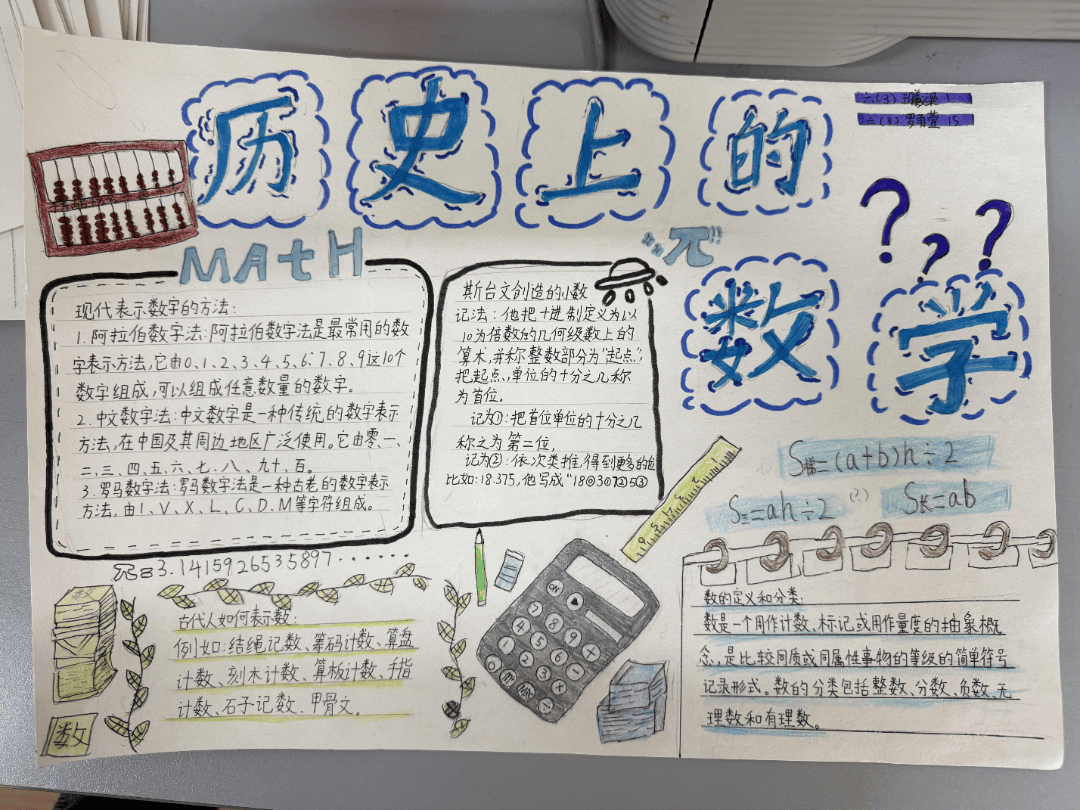 历史上的
数学
六(3)
六(3) 罗雨萱 15
? ? ?
MAtH
"π"
现代表示数字的方法:
1.阿拉伯数字法:阿拉伯数字法是最常用的数
字表示方法,它由0、1、2、3、4、5、6、7、8、9这10个
数字组成,可以组成任意数量的数字。
2.中文数字法:中文数字是一种传统的数字表示
方法,在中国及其周边地区广泛使用。它由零、一、
二、三、四、五、六、七、八、九十、百。
3.罗马数字法:罗马数字法是一种古老的数字表示
方法,由I、V、X、L、C、D、M等字符组成。
斯台文创造的小数
记法:他把十进制定义为以
10为倍数的几何级数上的
算术,并称整数部分为"起点",
把起点、单位的十分之几称
为首位,
记为①:把首位单位的十分之几
称之为第二位,
记为②:依次类推,得到更多的位
比如:18.375,他写成"18⓪3①7②5③
S梯=(a+b)h÷2
S三=ah÷2
S长=ab
π=3.1415926535897······
古代人如何表示数:
例如:结绳记数、筹码计数、算盘
计数、刻木计数、算板计数、手指
计数、石子记数、甲骨文。
数
数的定义和分类:
数是一个用作计数、标记或用作量度的抽象概
念,是比较同质或同属性事物的等级的简单符号
记录形式。数的分类包括整数、分数、负数、无
理数和有理数。